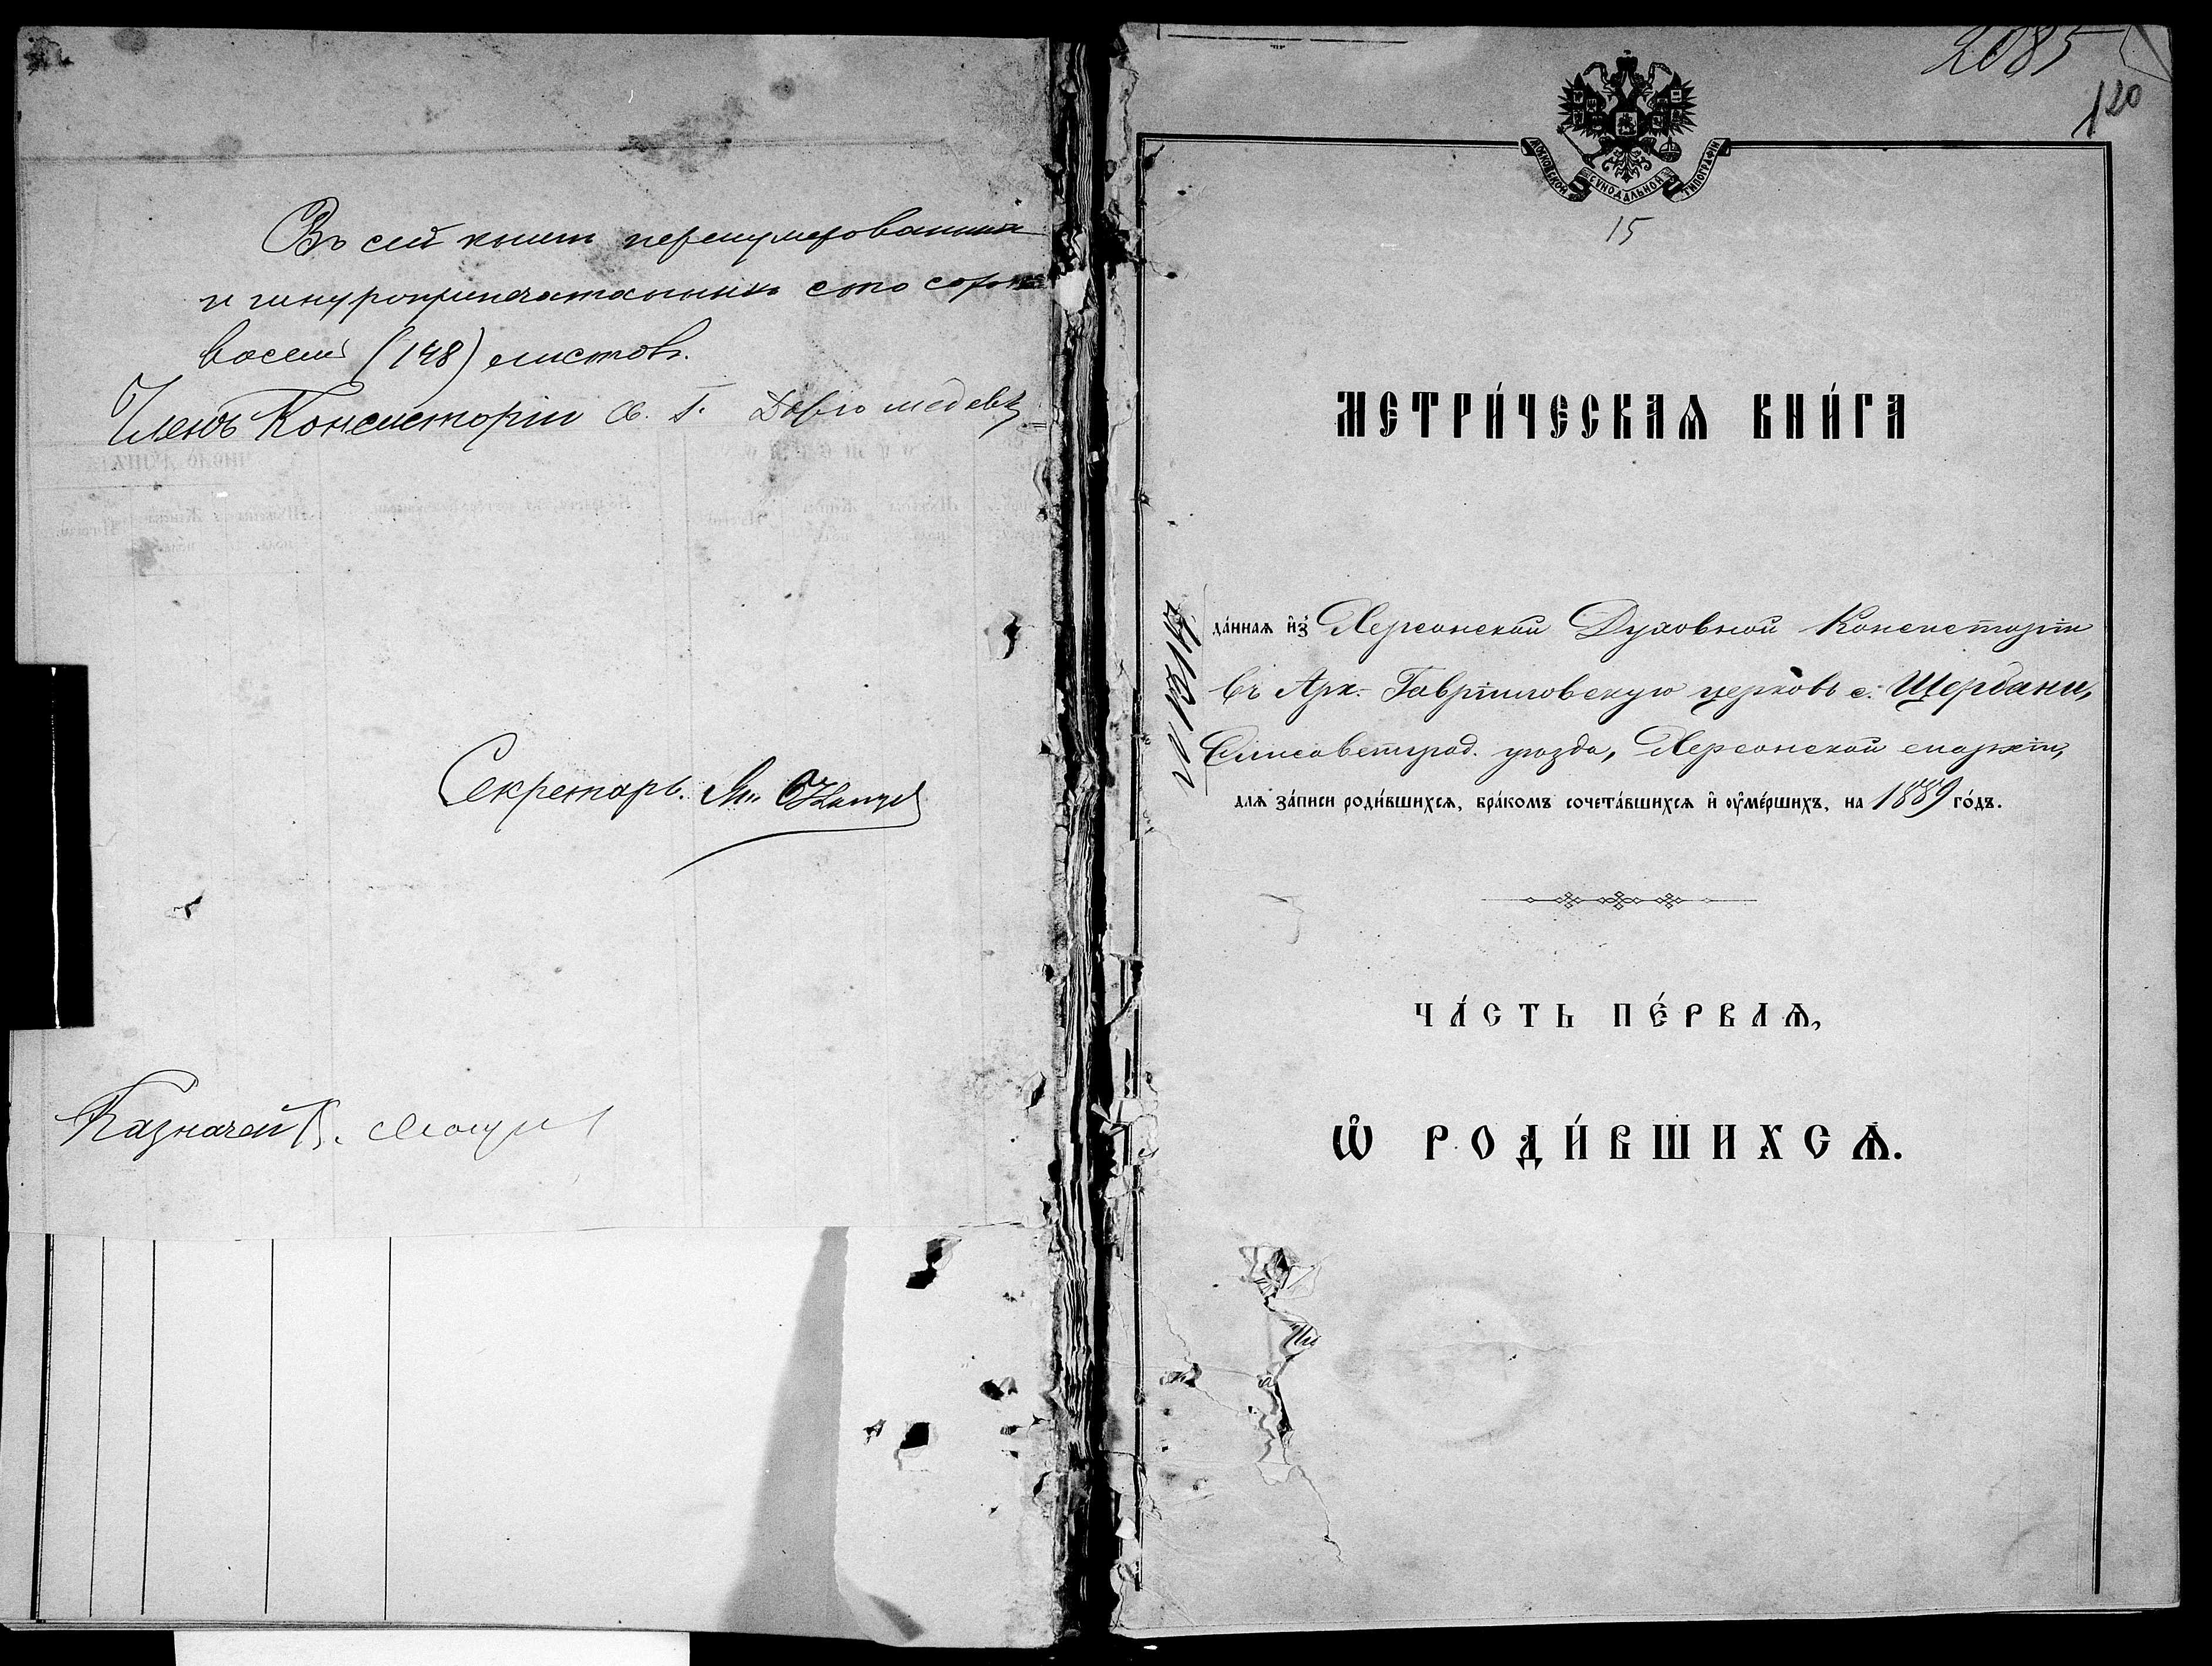 Въ сей книгѣ перенумерованныхъ
и шнуроприпечатанныхъ сто сорокъ
восемь (148) листовъ.
Членъ Консисторіи Св. Г.
Секретарь.
Казначей
2085
120
МОСКОВСКОЙ СѴНОДАЛЬНОЙ ТИПОГРАФІИ
15
МЕТРИ́ЧЕСКАѦ КНИ́ГА
да́ннаѧ и҆з̾ Херсонской Духовной Консисторіи
въ Арх.- Гавріиловскую церковь с. Щербани,
Елисаветград. уѣзда, Херсонской епархіи,
для за́писи роди́вшихсѧ, бра́комъ сочета́вшихсѧ и҆ ᲂу҆ме́ршихъ, на 1889 го́дъ.
ЧА́СТЬ ПЕ́РВАѦ,
Ѡ҆ РОДИ́ВШИХСѦ.